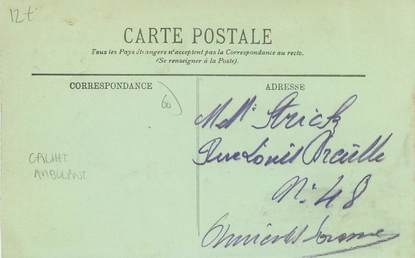 12t
CARTE POSTALE
Tous les Pays étrangers n'acceptent pas la Correspondance au recto.
(Se renseigner à la Poste).
CORRESPONDANCE
ADRESSE
60
Melle Strick
Rue Louis
N: 48
CACHET
AMBULANT